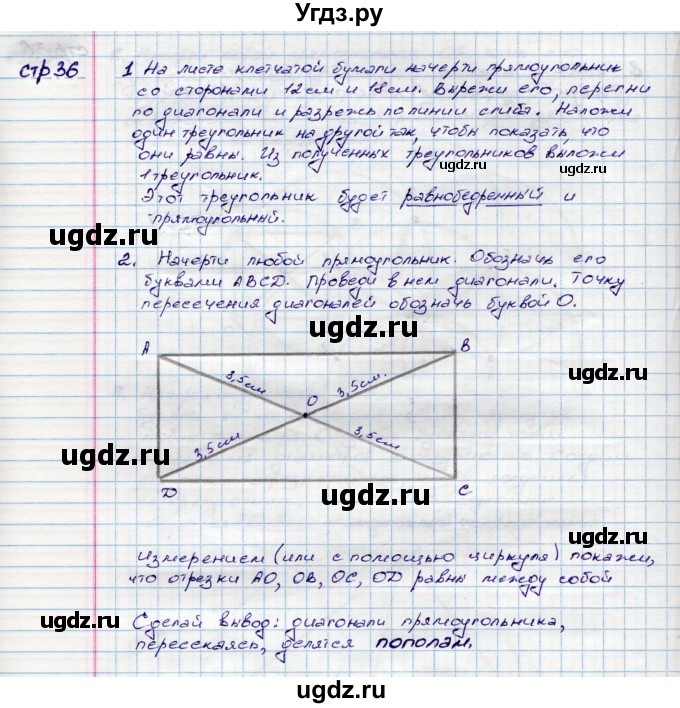 Угдз.ру
стр 36
1 На листе клетчатой бумаги начерти прямоугольник
со сторонами 12 см и 18 см. Вырежи его, перегни
по диагонали и разрежь по линии сгиба. Наложи
один треугольник на другой так, чтобы показать, что
они равны. Из полученных треугольников выложи
1 треугольник.
Этот треугольник будет равнобедренный и
прямоугольный.
ugdz.ru ugdz.ru
2. Начерти любой прямоугольник. Обозначь его
буквами ABCD. Проведи в нем диагонали. Точку
пересечения диагоналей обозначь буквой О.
ugdz.ru
A B
3,5см 3,5см.
O
ugdz.ru ugdz.ru
3,5см 3,5см
D C
ugdz.ru
Измерением (или с помощью циркуля) покажи,
что отрезки AO, OB, OC, OD равны между собой
ugdz.ru ugdz.ru
Сделай вывод: диагонали прямоугольника,
пересекаясь, делятся пополам.
ugdz.ru